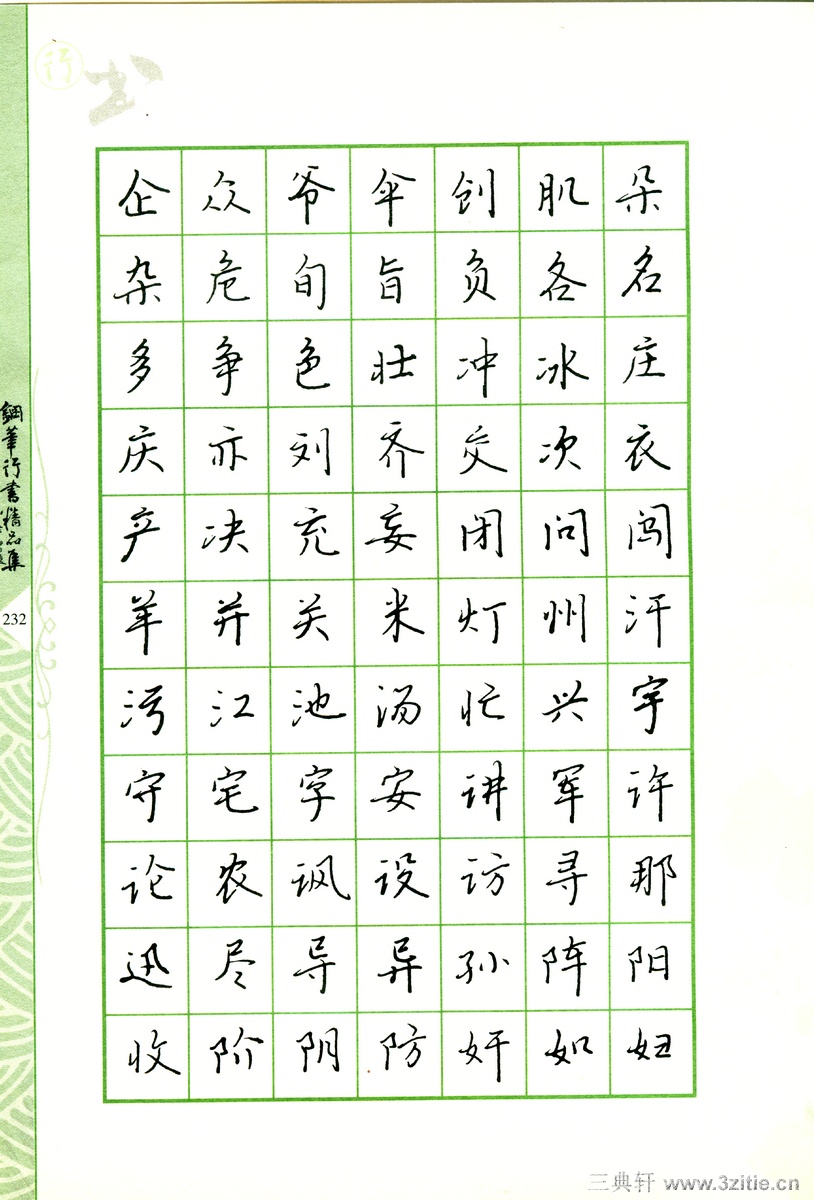 行书
企众爷伞创肌朵
杂危旬旨负各名
多争色壮冲冰庄
庆亦刘齐交次衣
产决充妄闭问闯
羊并关米灯州汗
污江池汤忙兴宇
守宅字安讲军许
论农讽设访寻那
迅尽导异孙阵阳
收阶阴防奸如妇
钢笔行书精品集
232
三典轩 www.3zitie.cn